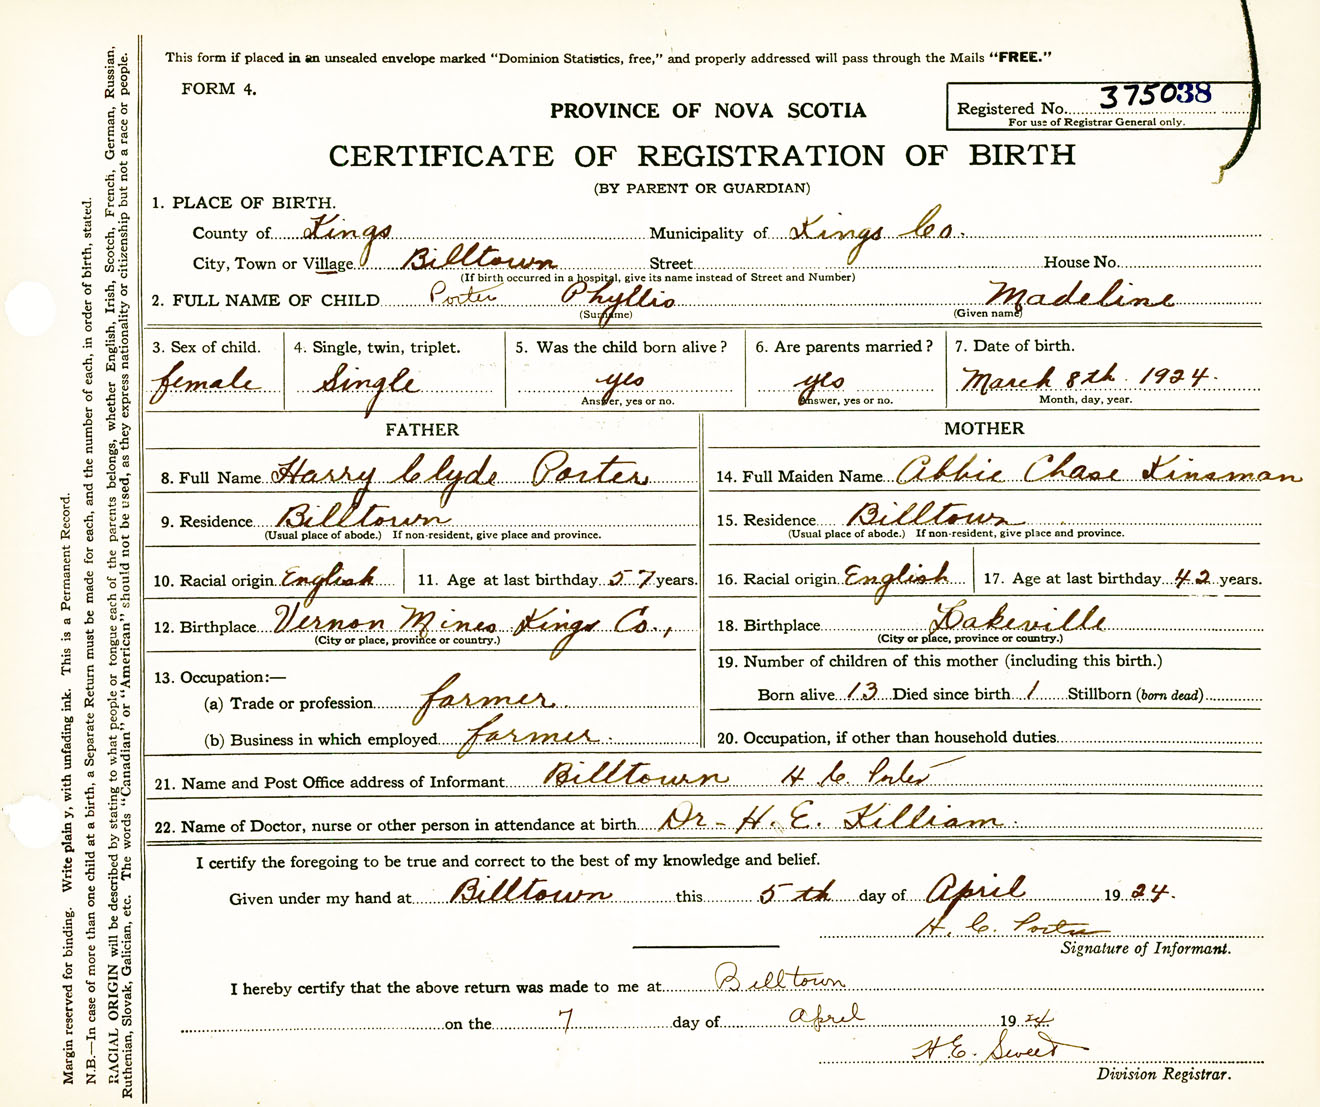 This form if placed in an unsealed envelope marked "Dominion Statistics, free," and properly addressed will pass through the Mails "FREE."
FORM 4.
Registered No. 375038
For use of Registrar General only.
PROVINCE OF NOVA SCOTIA
CERTIFICATE OF REGISTRATION OF BIRTH
(BY PARENT OR GUARDIAN)
1. PLACE OF BIRTH.
County of Kings Municipality of Kings Co.
City, Town or Village Billtown Street House No.
(If birth occurred in a hospital, give its name instead of Street and Number)
2. FULL NAME OF CHILD Porter Phyllis Madeline
(Surname) (Given name)
3. Sex of child. 4. Single, twin, triplet. 5. Was the child born alive? 6. Are parents married? 7. Date of birth.
female Single yes yes March 8th 1924.
Answer, yes or no. Answer, yes or no. Month, day, year.
FATHER
8. Full Name Harry Clyde Porter
9. Residence Billtown
(Usual place of abode.) If non-resident, give place and province.
10. Racial origin English 11. Age at last birthday 57 years.
12. Birthplace Vernon Mines Kings Co.,
(City or place, province or country.)
13. Occupation:—
(a) Trade or profession farmer
(b) Business in which employed farmer.
MOTHER
14. Full Maiden Name Abbie Chase Kinsman
15. Residence Billtown
(Usual place of abode.) If non-resident, give place and province.
16. Racial origin English 17. Age at last birthday 42 years.
18. Birthplace Lakeville
(City or place, province or country.)
19. Number of children of this mother (including this birth.)
Born alive 13 Died since birth 1 Stillborn (born dead)
20. Occupation, if other than household duties
21. Name and Post Office address of Informant Billtown H C Porter
22. Name of Doctor, nurse or other person in attendance at birth Dr - H. E. Killiam.
I certify the foregoing to be true and correct to the best of my knowledge and belief.
Given under my hand at Billtown this 5th day of April 1924.
H. C. Porter
Signature of Informant.
I hereby certify that the above return was made to me at Billtown
on the 7 day of April 1924
H E. Sweet
Division Registrar.
Margin reserved for binding. Write plain y, with unfading ink. This is a Permanent Record.
N.B.—In case of more than one child at a birth, a Separate Return must be made for each, and the number of each, in order of birth, stated.
RACIAL ORIGIN will be described by stating to what people or tongue each of the parents belongs, whether English, Irish, Scotch, French, German, Russian,
Ruthenian, Slovak, Galician, etc. The words "Canadian" or "American" should not be used, as they express nationality or citizenship but not a race or people.